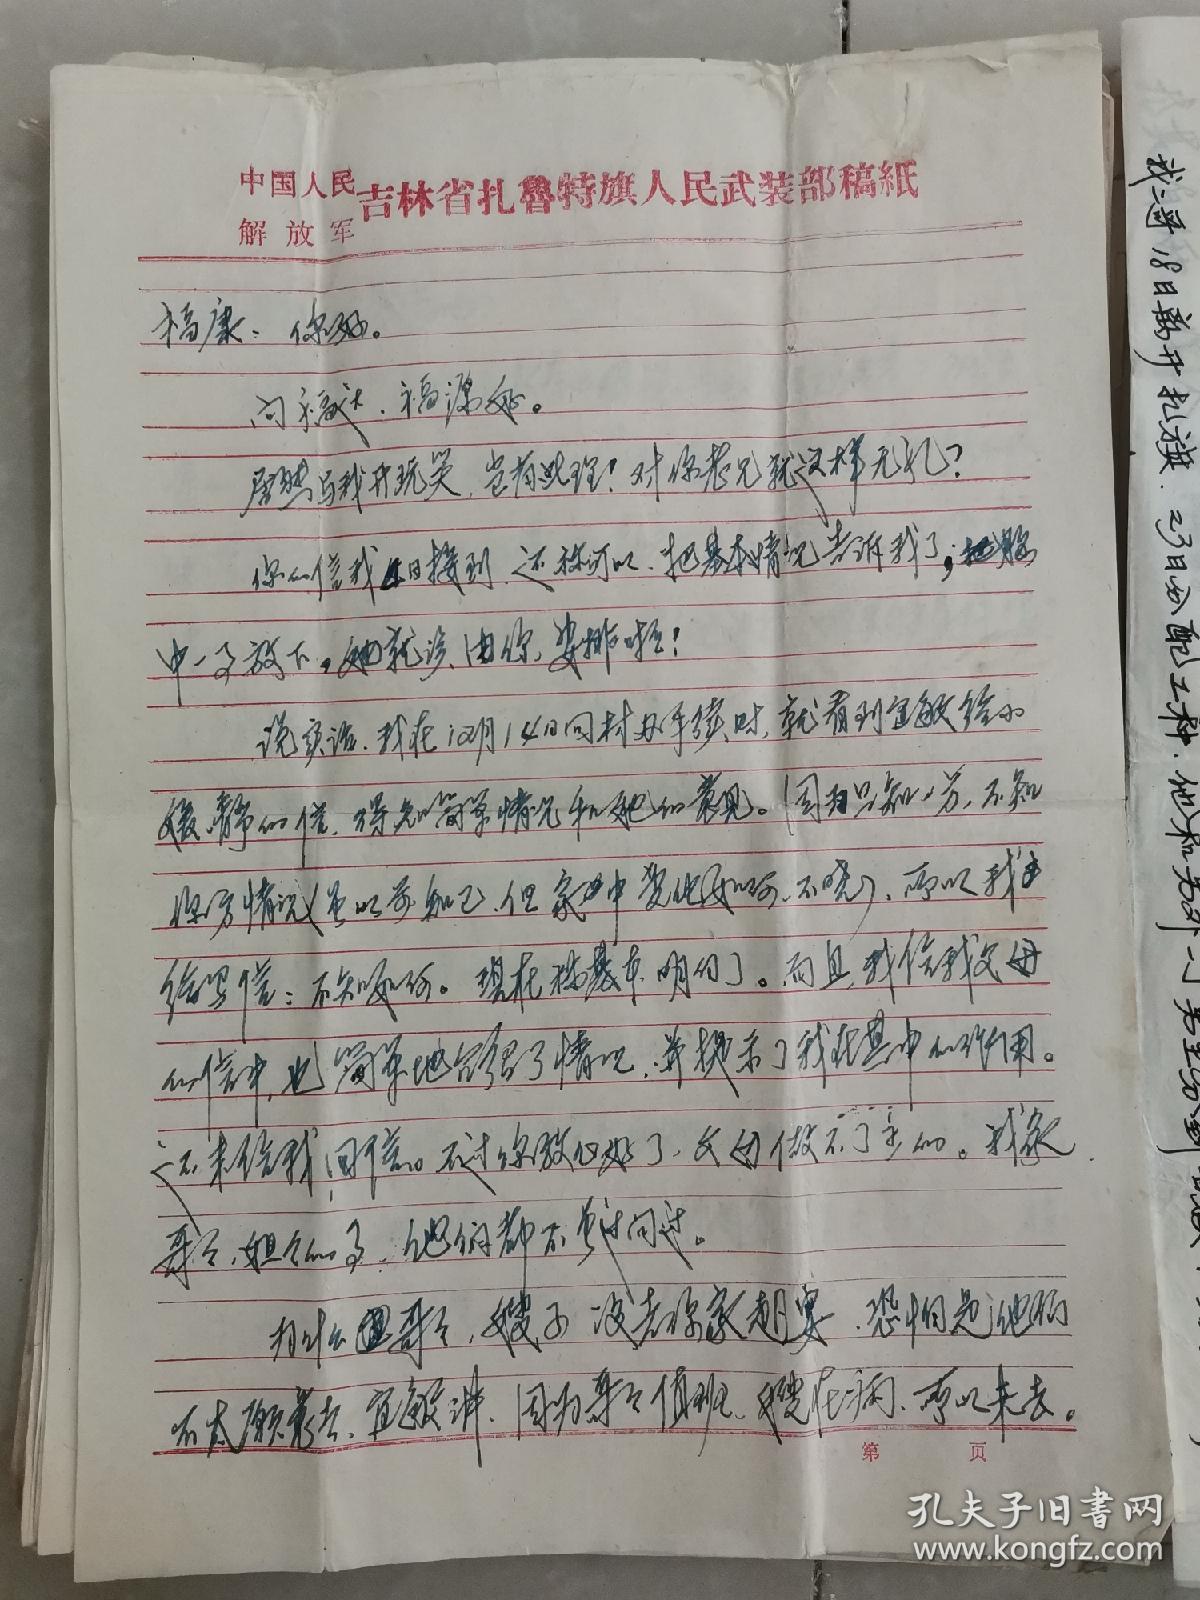 中国人民
解放军
吉林省扎魯特旗人民武装部稿紙
福康：你好。
问福达、福源好。
居然与我开玩笑，岂有此理！对你老兄就这样无礼？
你的信我4日接到，还称可以，把基本情况告诉我了，
中一了放下。她就说由你安排啦！
说实话，我在10月14日回村办手续时，就看到宜敏给小
媛静的信，得知简单情况和她的意见。因为只知一方，不知
你方情况（虽以前知己，但家中变化如何，不晓），所以我
给写信：不知如何。现在我基本明白了。而且，我给我父母
的信中，也简单地介绍了情况，并提示了我在其中的作用。
还未给我回信。不过你放心好了，父母做不了主的。我家
哥哥、姐姐的事，他们都不过问过。
为什么哥哥、嫂子没去你家赴宴，恐怕是他们
不太愿意去，宜敏讲，因为哥哥值班，嫂在病，所以未去。
第 页
我二哥18日离开扎旗，23日分配工种，他和另外一
孔夫子旧书网
www.kongfz.com